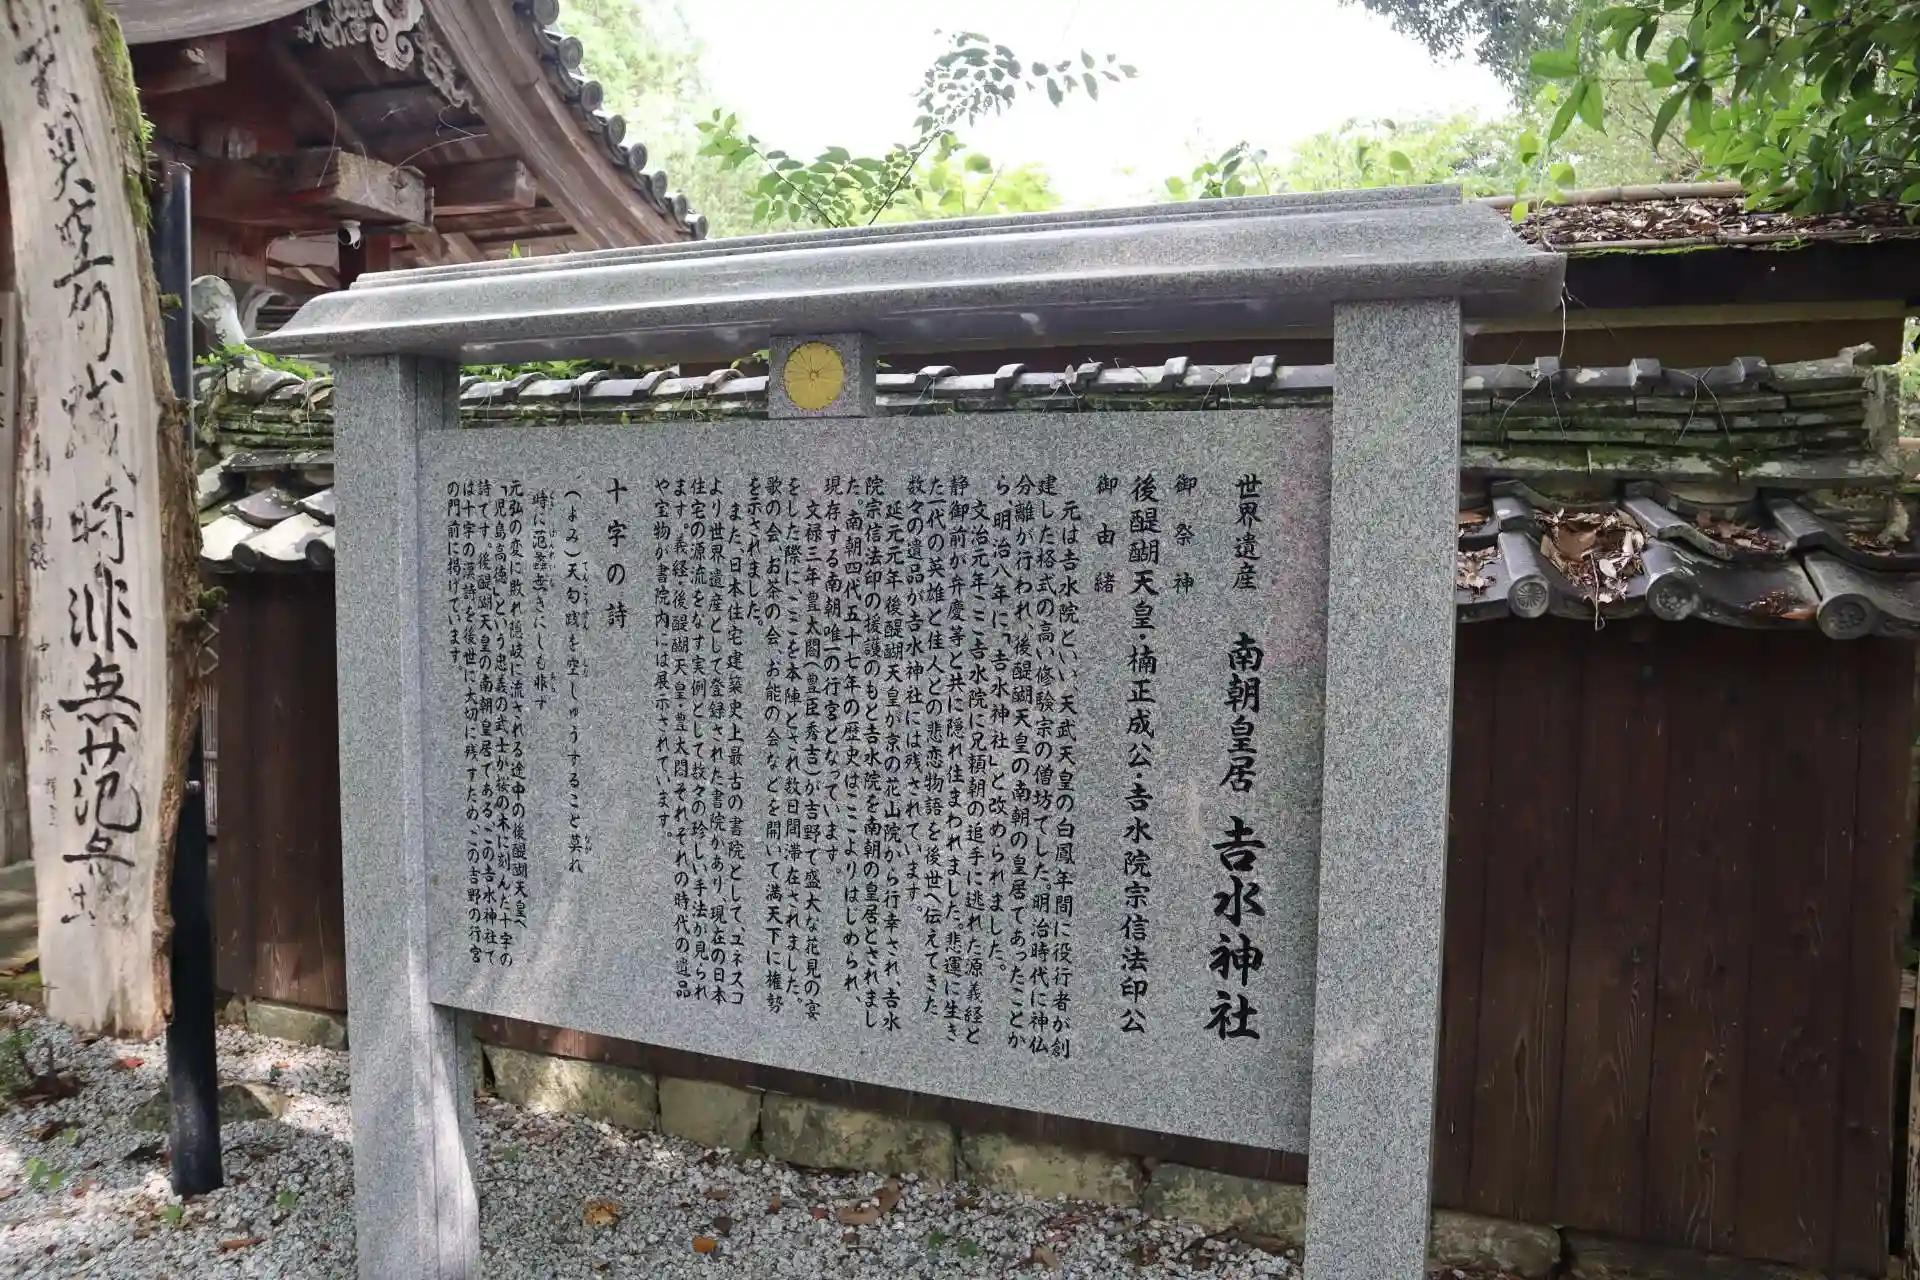 世界遺産　南朝皇居　吉水神社
御祭神
後醍醐天皇・楠正成公・吉水院宗信法印公
御由緒
元は吉水院といい、天武天皇の白鳳年間に役行者が創
建した格式の高い修験宗の僧坊でした。明治時代に神仏
分離が行われ、後醍醐天皇の南朝の皇居であったことか
ら、明治八年に「吉水神社」と改められました。
文治元年、ここ吉水院に兄頼朝の追手に逃れた源義経と
静御前が弁慶等と共に隠れ住まわれました。悲運に生き
た一代の英雄と佳人との悲恋物語を後世へ伝えてきた
数々の遺品が吉水神社には残されています。
延元元年、後醍醐天皇が京の花山院から行幸され、吉水
院宗信法印の援護のもと吉水院を南朝の皇居とされまし
た。南朝四代五十七年の歴史はここよりはじめられ、
現存する南朝唯一の行宮となっています。
文禄三年豊太閤（豊臣秀吉）が吉野で盛大な花見の宴
をした際に、ここを本陣とされ数日間滞在されました。
歌の会、お茶の会、お能の会などを開いて満天下に権勢
を示されました。
また、日本住宅建築史上最古の書院として、ユネスコ
より世界遺産として登録された書院があり、現在の日本
住宅の源流をなす実例として数々の珍しい手法が見られ
ます。義経・後醍醐天皇・豊太閤それぞれの時代の遺品
や宝物が書院内には展示されています。
十字の詩
（よみ）天勾践を空しゅうすること莫れ
時に范蠡無きにしも非ず
元弘の変に敗れ隠岐に流される途中の後醍醐天皇へ
「児島高徳」という忠義の武士が桜の木に刻んだ十字の
詩です。後醍醐天皇の南朝皇居である、この吉水神社で
は十字の漢詩を後世に大切に残すため、この吉野の行宮
の門前に掲げています。
天莫空勾践時非無范蠡